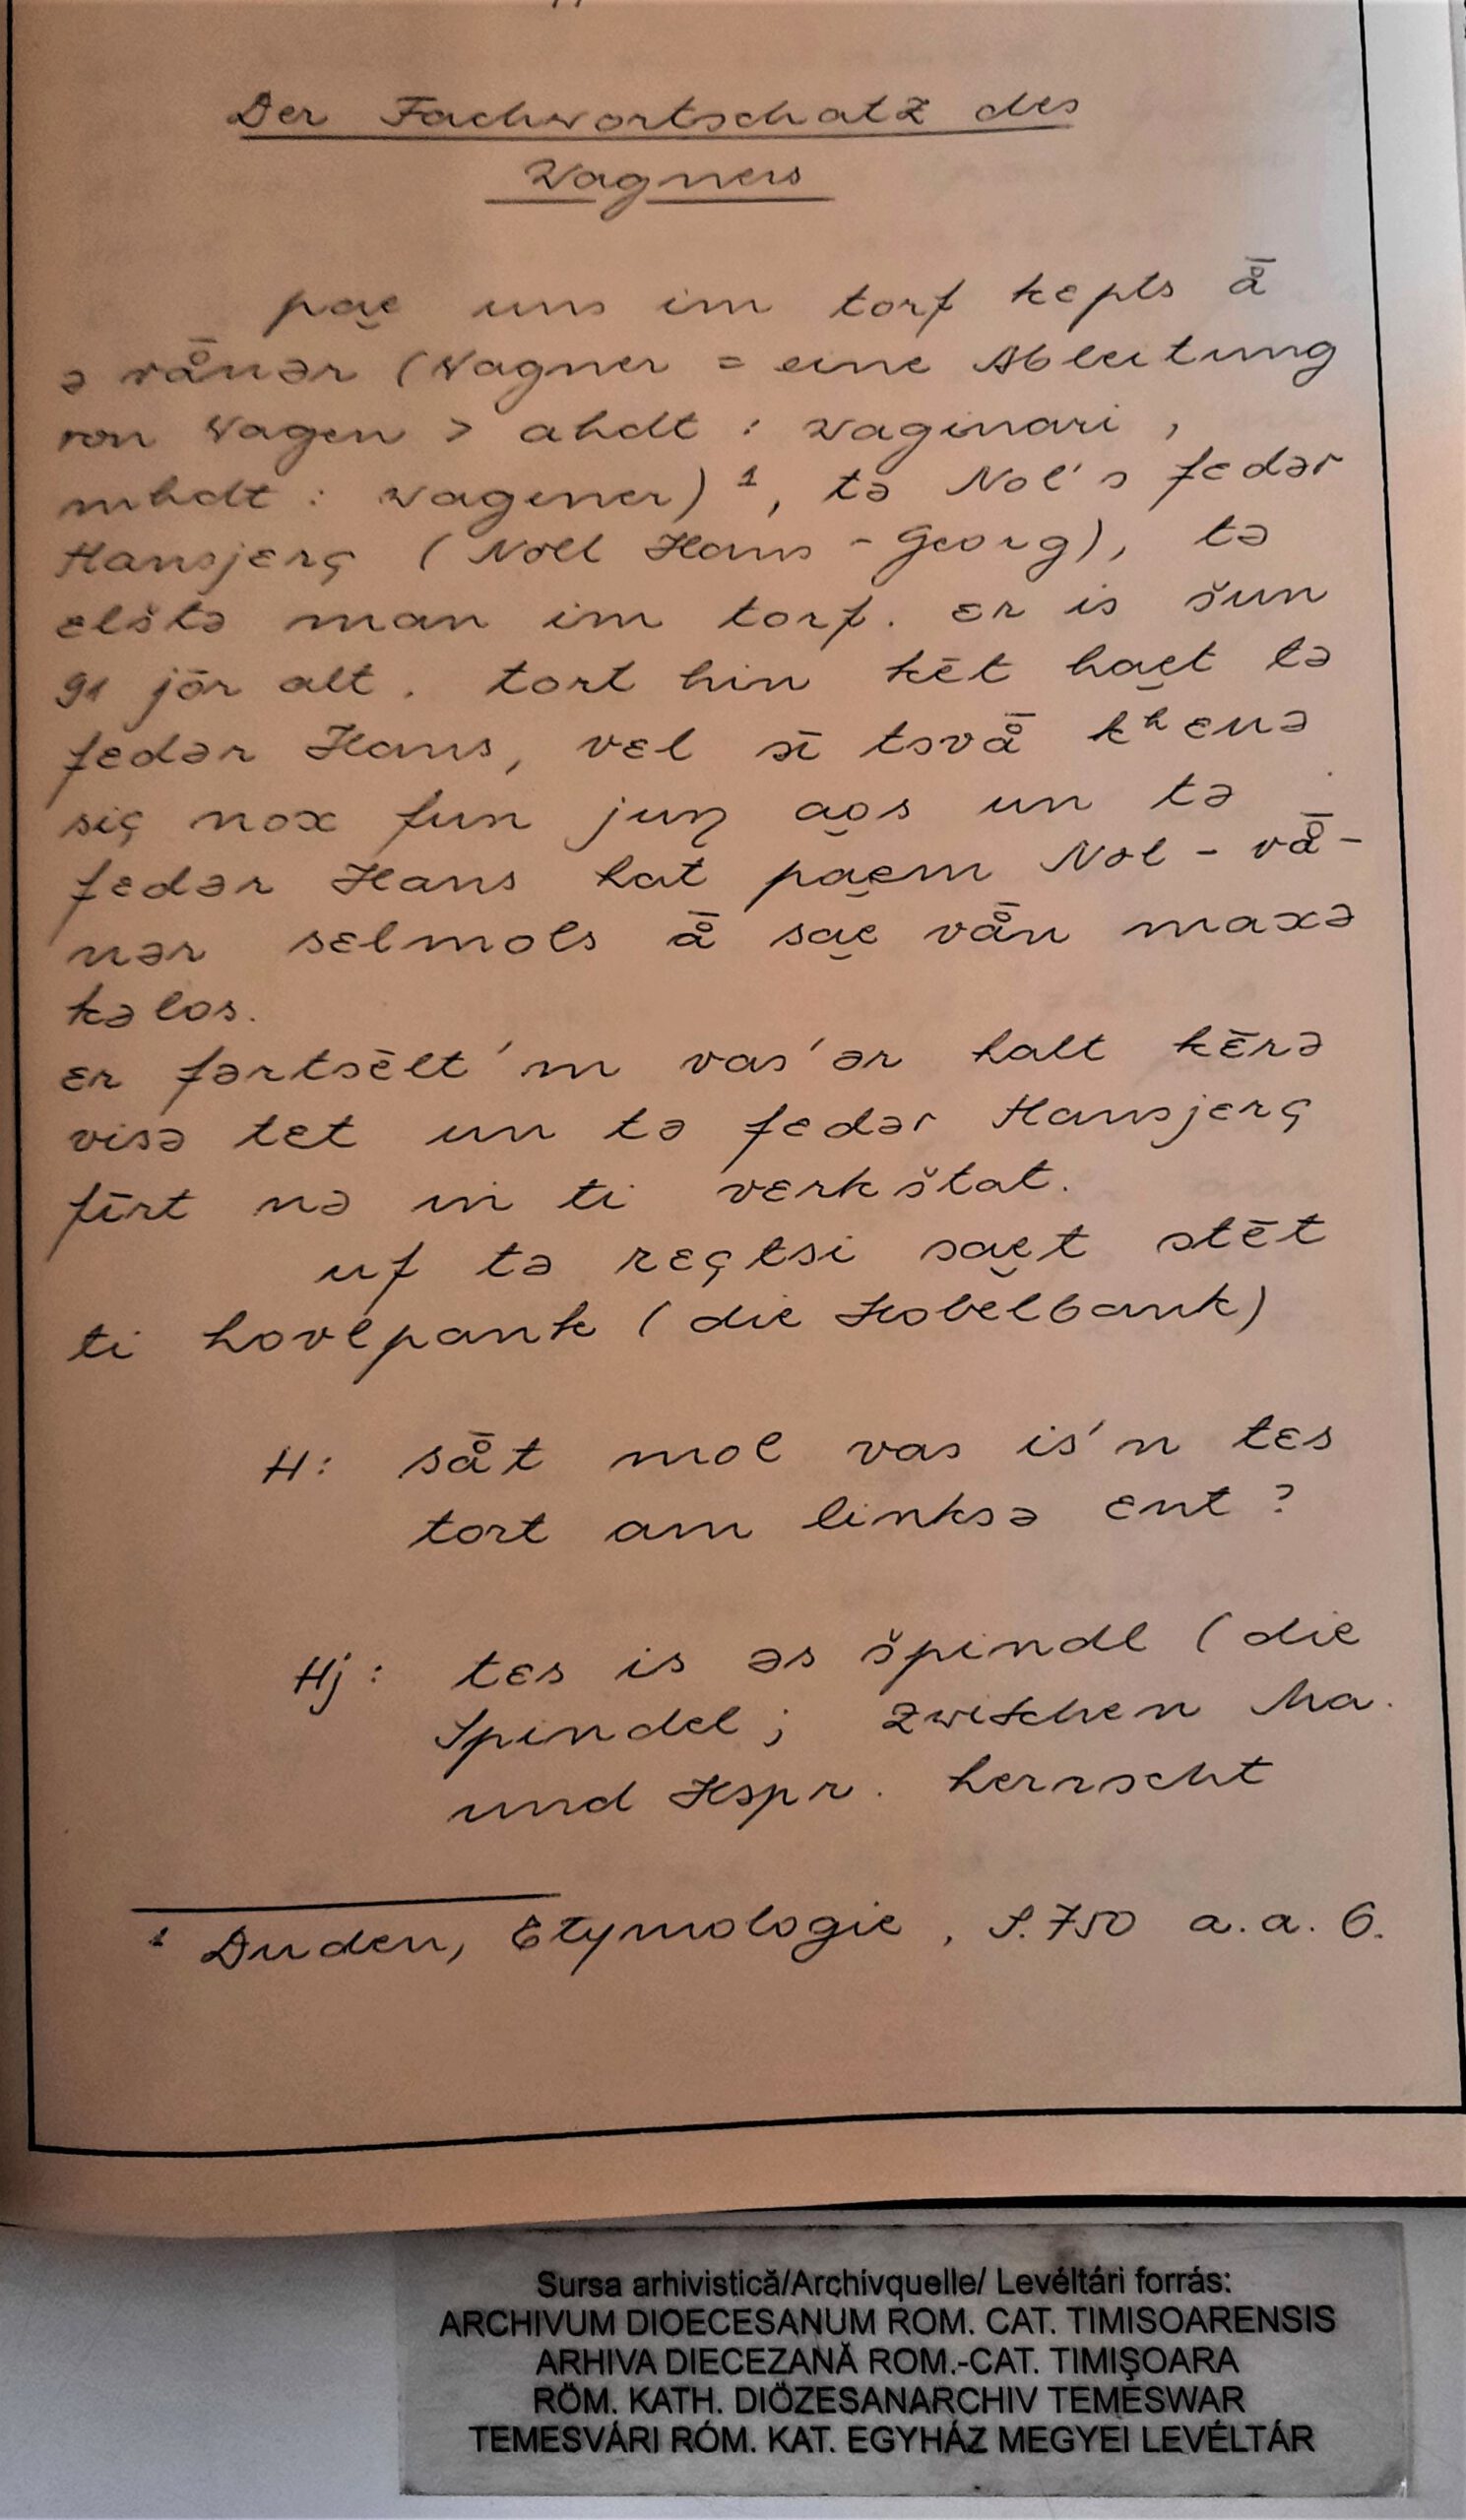 Der Fachwortschatz des
Wagners
pae̯ uns im torf kɛpts ā̊
ə vā̊nər (Wagner = eine Ableitung
von Wagen > ahdt : waginari ,
mhdt : wagener) ¹, tə Nol's fɛdər
Hansjɛrç (Noll Hans - Georg), tə
ɛlštə man im torf. ɛr is šun
91 jōr alt. tort hin kēt hae̯t tə
fɛdər Hans, vɛl sī tsvā̊ kʰɛnə
siç nox fun juŋ ao̯s un tə
fɛdər Hans hat pae̯m Nol - vā̊-
nər sɛlmols ā̊ sae̯ vā̊n maxə
kəlos.
ɛr fərtsēlt'm vas'ər halt kērə
visə tet un tə fɛdər Hansjɛrç
fīrt nə in ti vɛrkštat.
uf tə rɛçtsi sae̯t stēt
ti hovlpank (die Hobelbank)
H: sā̊t mol vas is'n tɛs
tort am linksə ɛnt ?
Hj: tɛs is əs špindl (die
Spindel; zwischen Ma.
und Hspr. herrscht
¹ Duden, Etymologie, S. 750 a.a.O.
Sursa arhivistică/Archivquelle/ Levéltári forrás:
ARCHIVUM DIOECESANUM ROM. CAT. TIMISOARENSIS
ARHIVA DIECEZANĂ ROM.-CAT. TIMIŞOARA
RÖM. KATH. DIÖZESANARCHIV TEMESWAR
TEMESVÁRI RÓM. KAT. EGYHÁZ MEGYEI LEVÉLTÁR